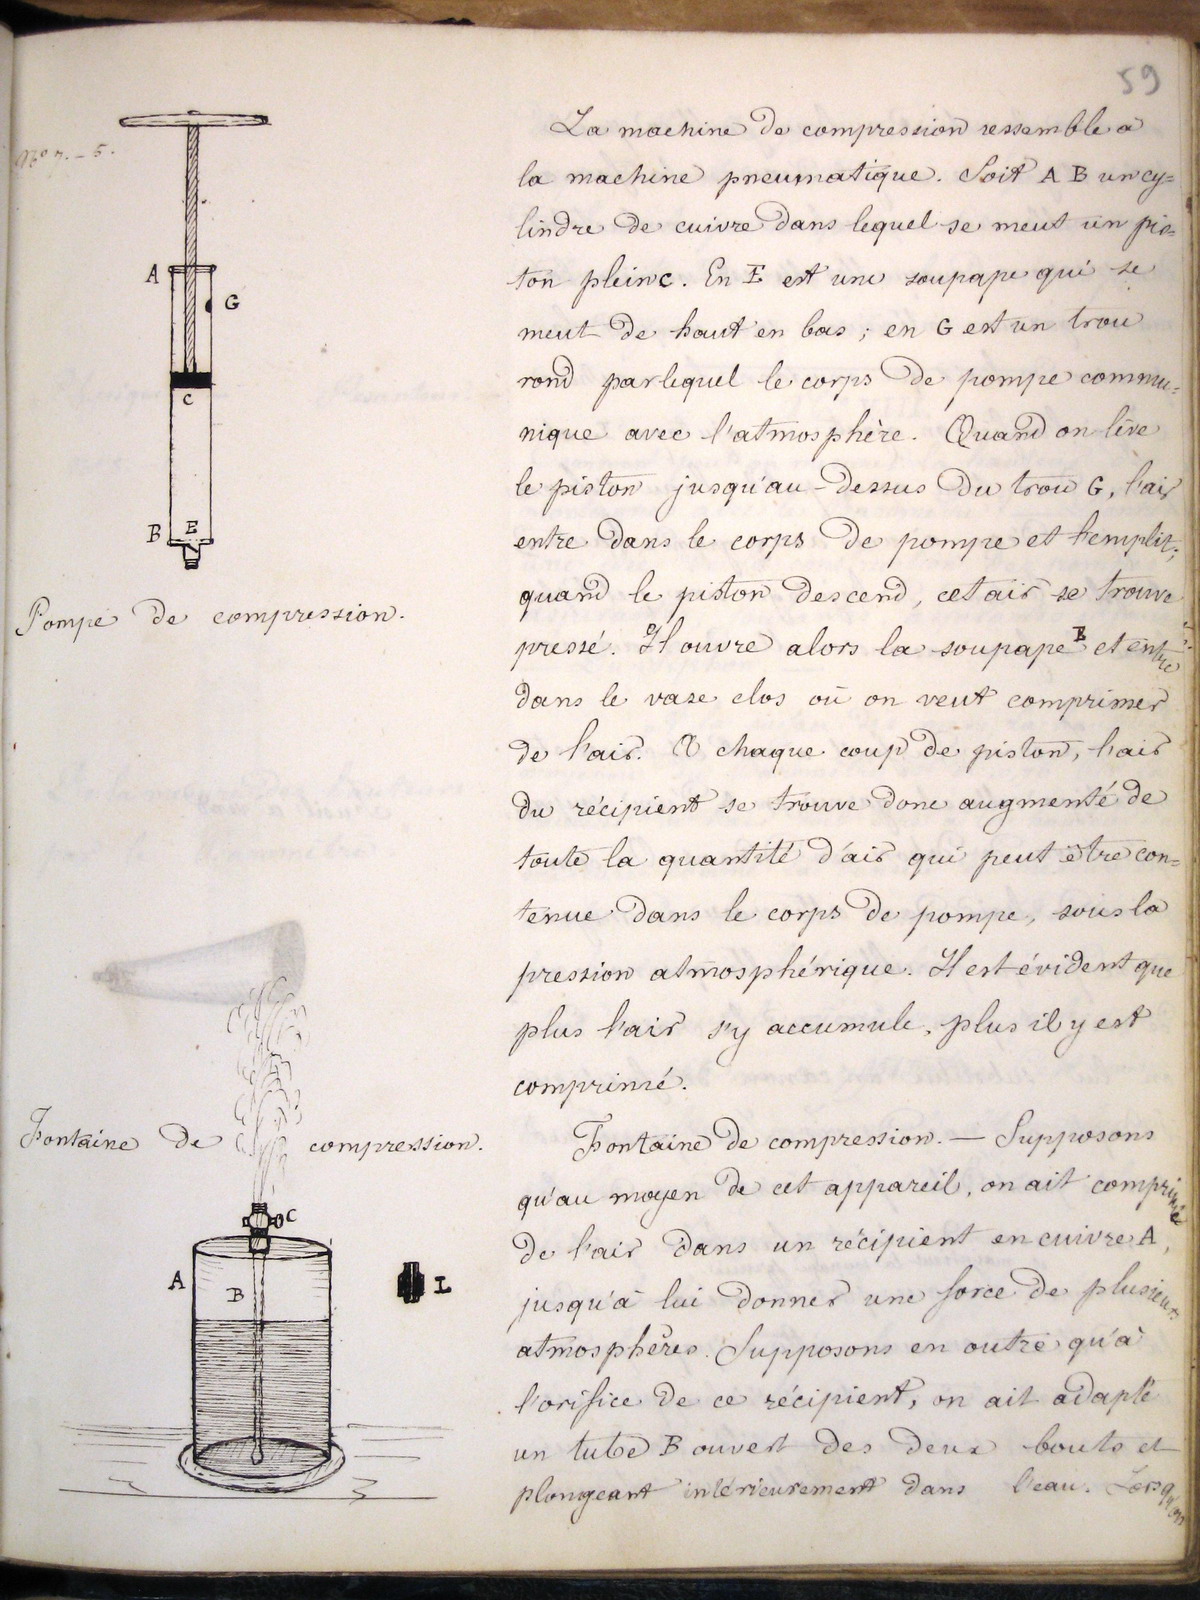 59
No 7. - 5.
A
G
C
B E
Pompe de compression.
La machine de compression ressemble à
la machine pneumatique. Soit A B un cy=
lindre de cuivre dans lequel se meut un pis=
ton plein C. En E est une soupape qui se
meut de haut en bas ; en G est un trou
rond par lequel le corps de pompe commu=
nique avec l'atmosphère. Quand on lève
le piston jusqu'au-dessus du trou G, l'air
entre dans le corps de pompe et l'emplit;
quand le piston descend, cet air se trouve
pressé. Il ouvre alors la soupape E et entre
dans le vase clos où on veut comprimer
de l'air. A chaque coup de piston, l'air
du récipient se trouve donc augmenté de
toute la quantité d'air qui peut être con=
tenue dans le corps de pompe, sous la
pression atmosphérique. Il est évident que
plus l'air s'y accumule, plus il y est
comprimé.
Fontaine de compression.
C
A
B
L
Fontaine de compression. — Supposons
qu'au moyen de cet appareil, on ait comprimé
de l'air dans un récipient en cuivre A,
jusqu'à lui donner une force de plusieurs
atmosphères. Supposons en outre qu'à
l'orifice de ce récipient, on ait adapté
un tube B ouvert des deux bouts et
plongeant intérieurement dans l'eau. Lorsqu'on